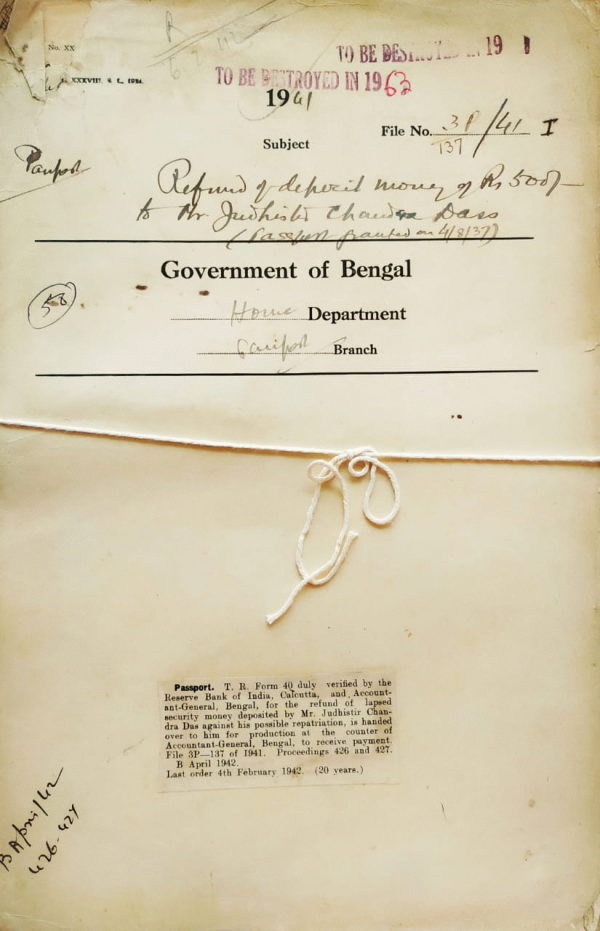 No. XX
XXXVIII. S. L., 1936.
TO BE DESTROYED IN 19
TO BE DESTROYED IN 1963
1941
File No. 3P/41 I
137
Subject
Passport
Refund of deposit money of Rs 500/-
to Mr Judhistir Chandra Dass
(Passport granted on 4/8/37)
Government of Bengal
58
Home Department
Passport Branch
Passport. T. R. Form 40 duly verified by the
Reserve Bank of India, Calcutta, and Account-
ant-General, Bengal, for the refund of lapsed
security money deposited by Mr. Judhistir Chan-
dra Das against his possible repatriation, is handed
over to him for production at the counter of
Accountant-General, Bengal, to receive payment.
File 3P—137 of 1941. Proceedings 426 and 427.
B April 1942.
Last order 4th February 1942. (20 years.)
B April/42
426-427